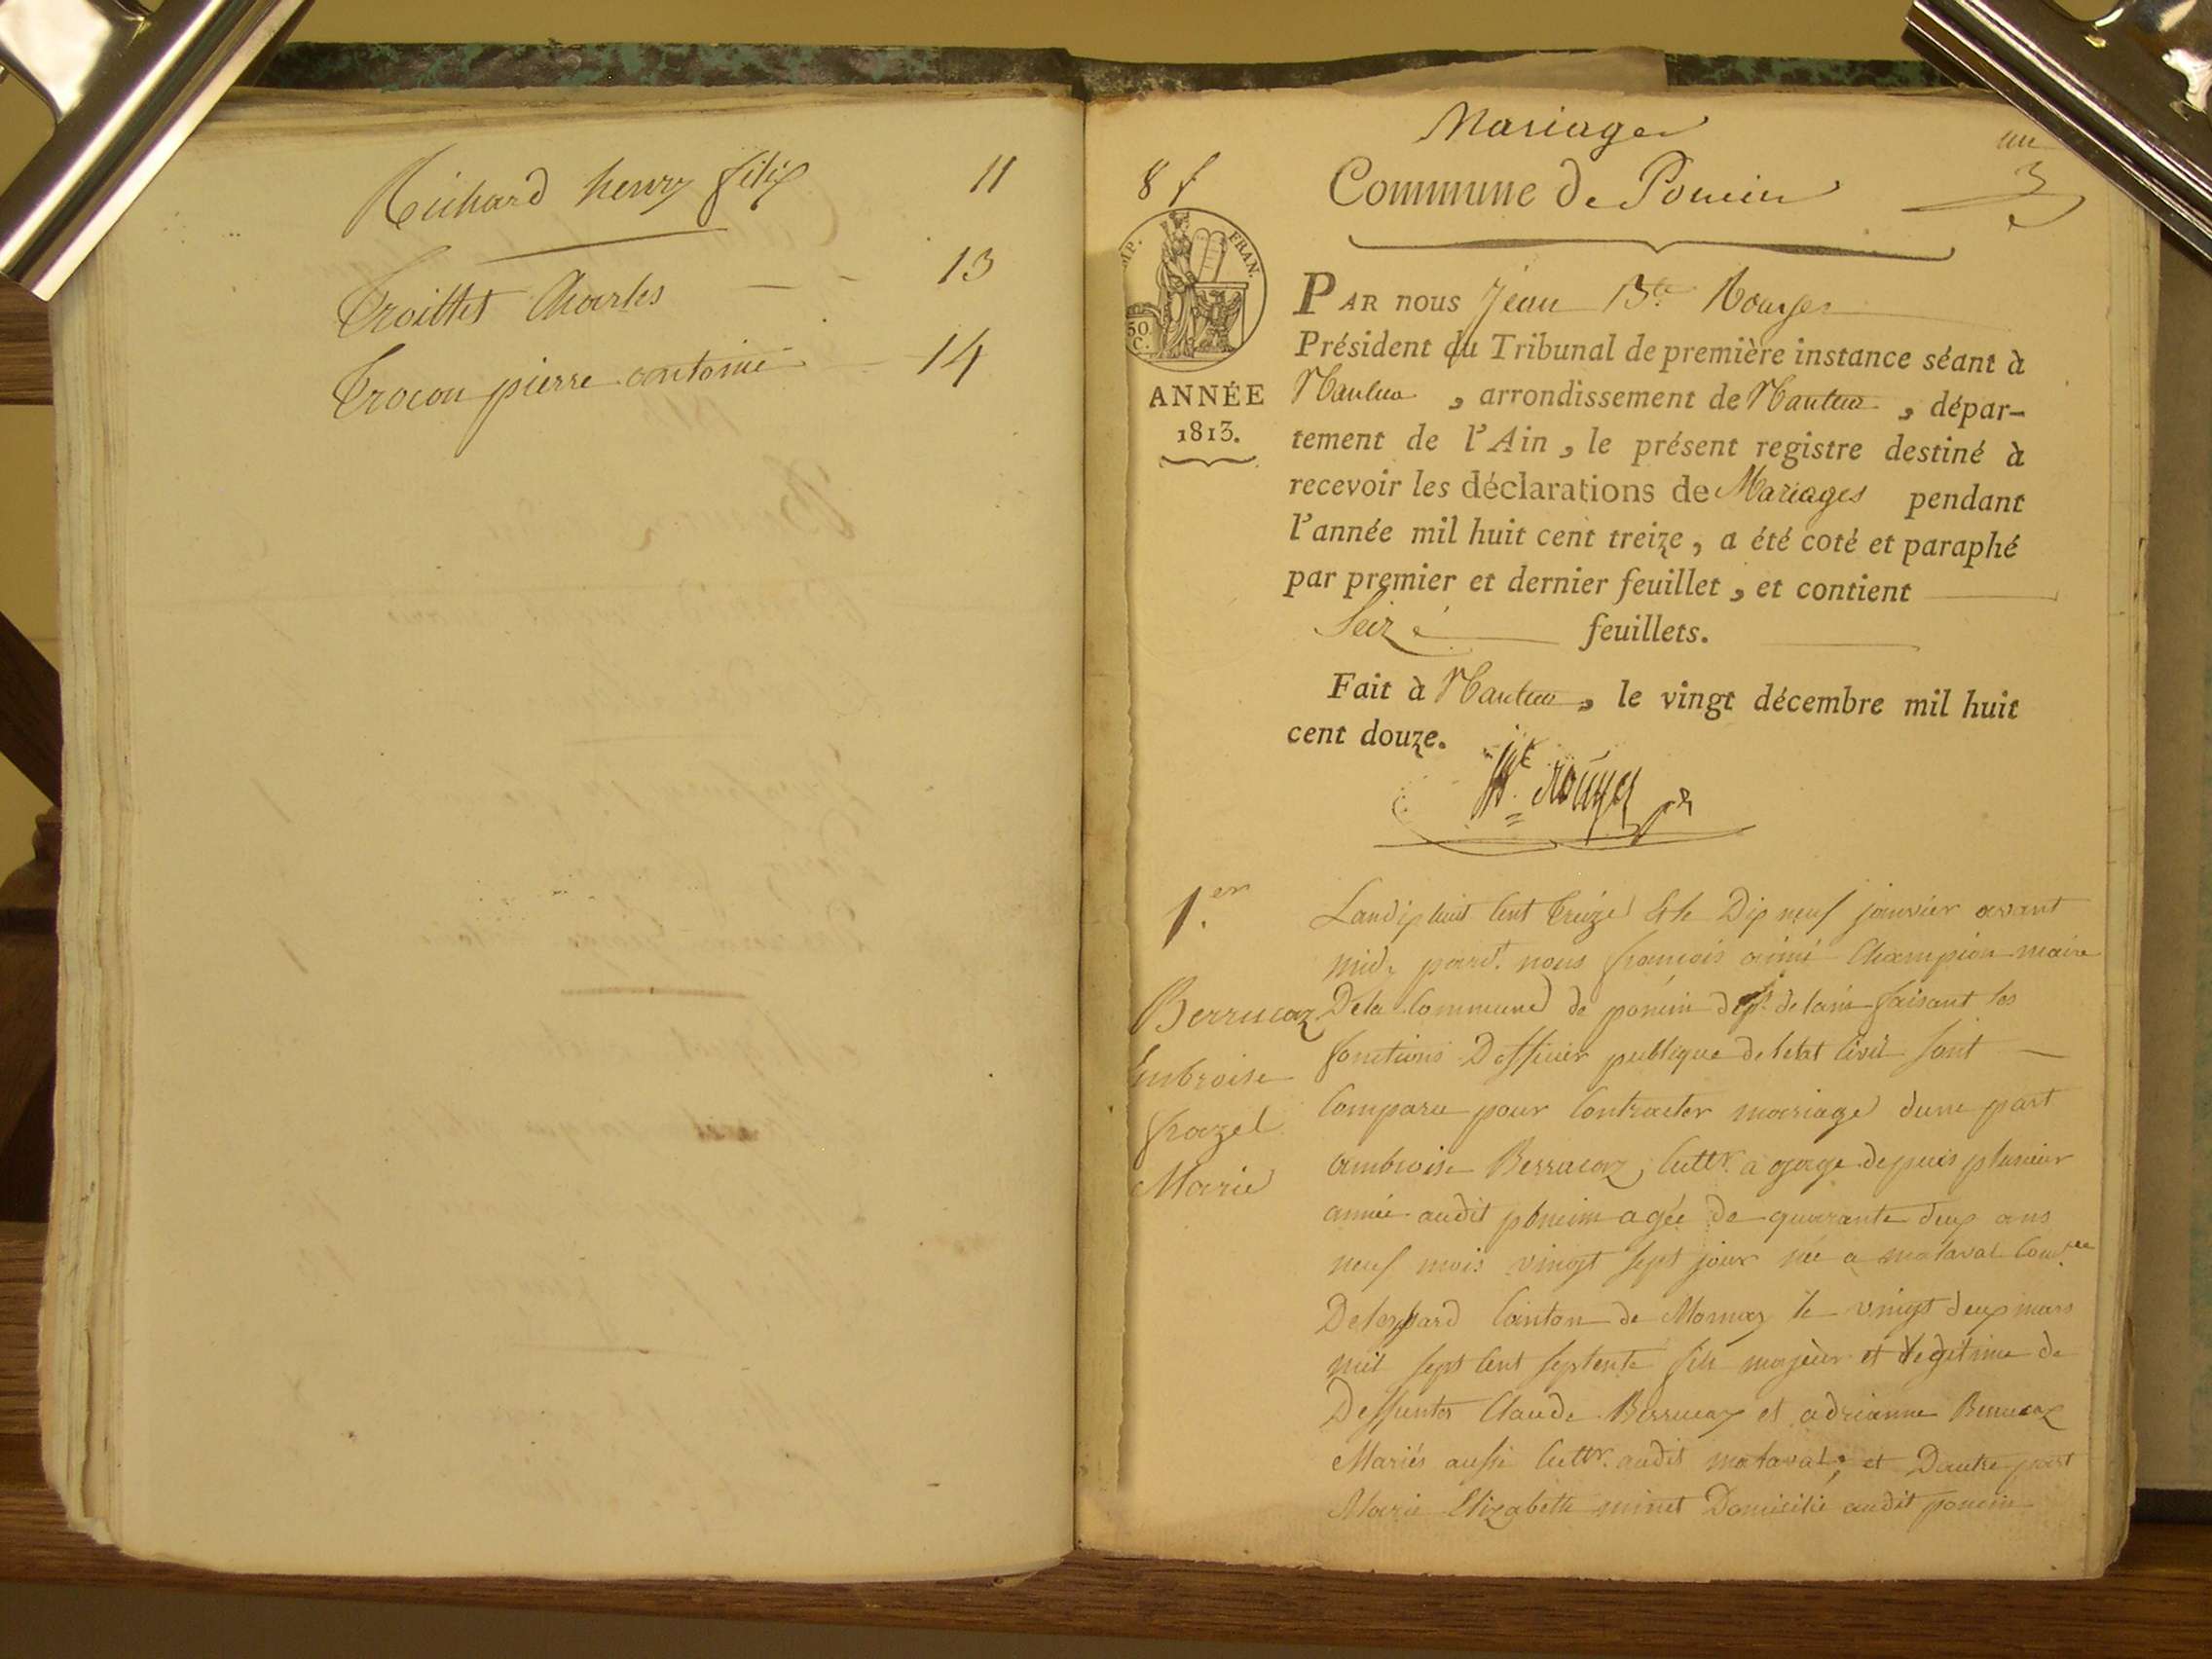 Richard henry felix 11
Troillet Charles 13
Trocon pierre antoine 14
Mariages
un
8 f
Commune de Poncin
IMP. FRAN.
50. C.
ANNÉE
1813.
PAR nous Jean Bte
Président du Tribunal de première instance séant à
Nantua, arrondissement de Nantua, dépar-
tement de l'Ain, le présent registre destiné à
recevoir les déclarations de Mariages pendant
l'année mil huit cent treize, a été coté et paraphé
par premier et dernier feuillet, et contient
Seize feuillets.
Fait à Nantua, le vingt décembre mil huit
cent douze.
1.er
Berrucaz
Embroise
frazel
Marie
Landix huit Cent Treize Et le Dix neuf janvier avant
midy pard.t nous francois aimé Champion maire
De la Commune de poncin dept. de lain faisant les
fonctions Dofficier publique de letat Civil sont
Comparu pour Contracter mariage dune part
ambroise Berrucaz, Cultr. a gage depuis plusieur
année audit poncin agée de quarante deux ans
neuf mois vingt sept jour née a mataval
canton de Mornay le vingt deux mars
mil sept Cent septente fils majeur et legitime de
Deffuntes Claude Berrucaz et adrianne Berrucaz
Mariés aussi Cultr. audit mataval; et Dautre part
Marie Elizabeth minet Domicilié audit poncin